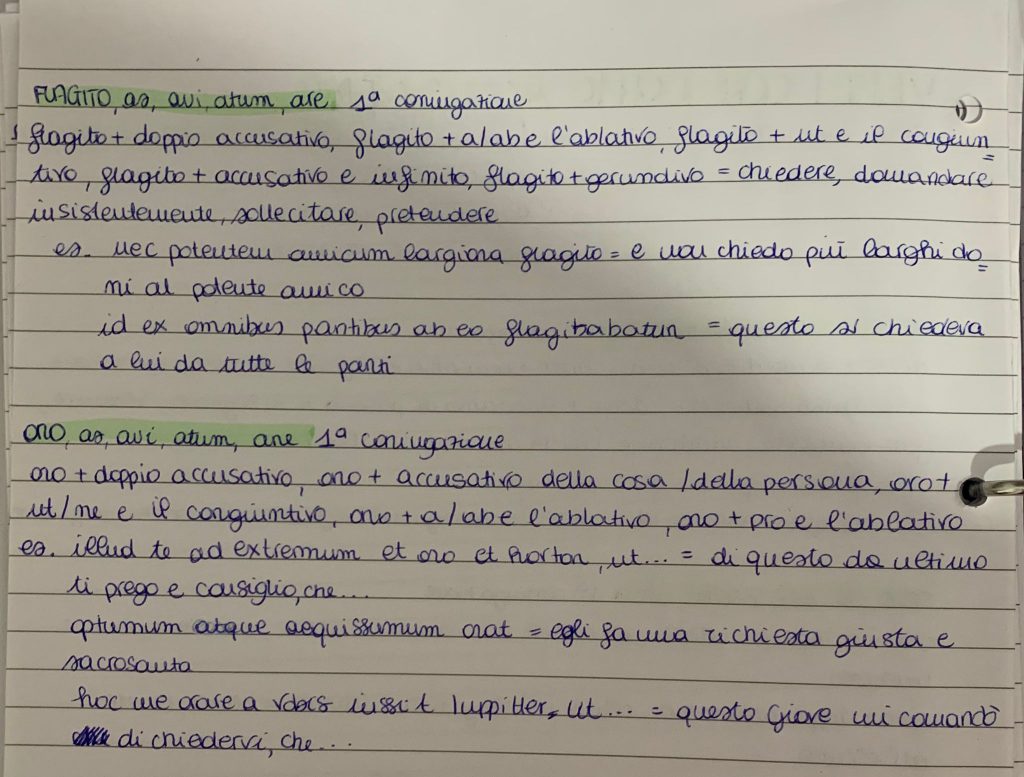 FLAGITO, as, avi, atum, are 1ª coniugazione
flagito + doppio accusativo, flagito + a/ab e l'ablativo, flagito + ut e il congiun=
tivo, flagito + accusativo e infinito, flagito + gerundivo = chiedere, domandare
insistentemente, sollecitare, pretendere
es. nec potentem amicum largiora flagito = e non chiedo più larghi do=
ni al potente amico
id ex omnibus partibus ab eo flagitabatur = questo si chiedeva
a lui da tutte le parti
ORO, as, avi, atum, are 1ª coniugazione
oro + doppio accusativo, oro + accusativo della cosa / della persona, oro +
ut/ne e il congiuntivo, oro + a/ab e l'ablativo, oro + pro e l'ablativo
es. illud te ad extremum et oro et hortor, ut... = di questo da ultimo
ti prego e consiglio, che...
optumum atque aequissumum orat = egli fa una richiesta giusta e
sacrosanta
hoc me orare a vobis iussit Iuppiter, ut... = questo Giove mi comandò
di chiedervi, che...